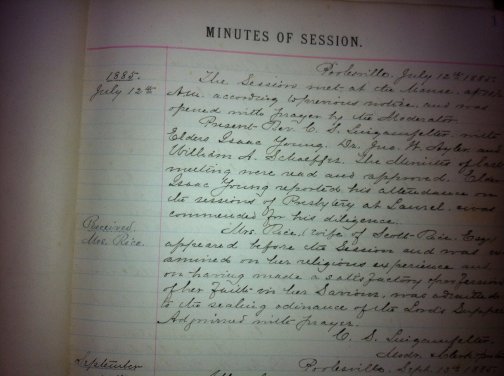 MINUTES OF SESSION.
Poolesville, July 12th 1885
1885.
July 12th
The Session met at the Manse, at
according to previous notice, and was
opened with prayer by the Moderator.
Present Rev. C. S. Luigamfelter, with
Elders Isaac Young, Dr. Jno. W. Ayler and
William A. Schaeffer. The Minutes of last
meeting were read and approved. Elder
Isaac Young reported his attendance on
the sessions of Presbytery at Laurel, & was
commended for his diligence.
Received
Mrs. Rice.
Mrs. Rice, wife of Scott Rice, Esq.
appeared before the Session and was ex
amined on her religious experience and
on having made a satisfactory profession
of her faith in her Saviour, was admitted
to the sealing ordinance of the Lord's Supper
Adjourned with prayer.
C. S. Luigamfelter,
Modr.
Poolesville, Sept. 13th 1885
September